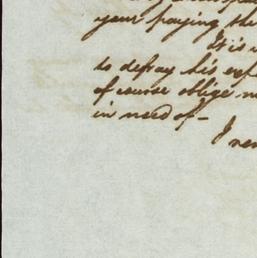 your paying the
It is
to defray his exp
of course oblige
in need of –
I